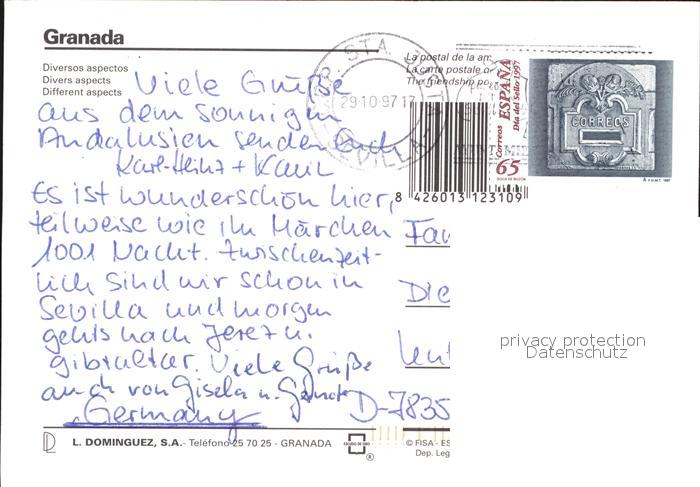 Granada
Diversos aspectos
Divers aspects
Different aspects
La postal de la am
La carte postale
The friendship po
STA.
29·10·97
SEVILLA
Correos ESPAÑA
Dia del Sello 1997
65
BOCA DE BUZON
CORREOS
F.N.M.T. 1997
8 426013 123109
Viele Grüße
aus dem sonnigen
Andalusien senden Euch
Karl-Heinz +
Es ist wunderschön hier,
teilweise wie im Märchen
1001 Nacht. Zwischenzeit-
lich sind wir schon in
Sevilla und morgen
gehts nach Jerez u.
Gibraltar. Viele Grüße
auch von Gisela u. Gernot
Germany
Fam
Die
D-7835
privacy protection
Datenschutz
L. DOMINGUEZ, S.A.- Teléfono 25 70 25 - GRANADA
ESCUDO DE ORO
®
© FISA - ES
Dep. Leg